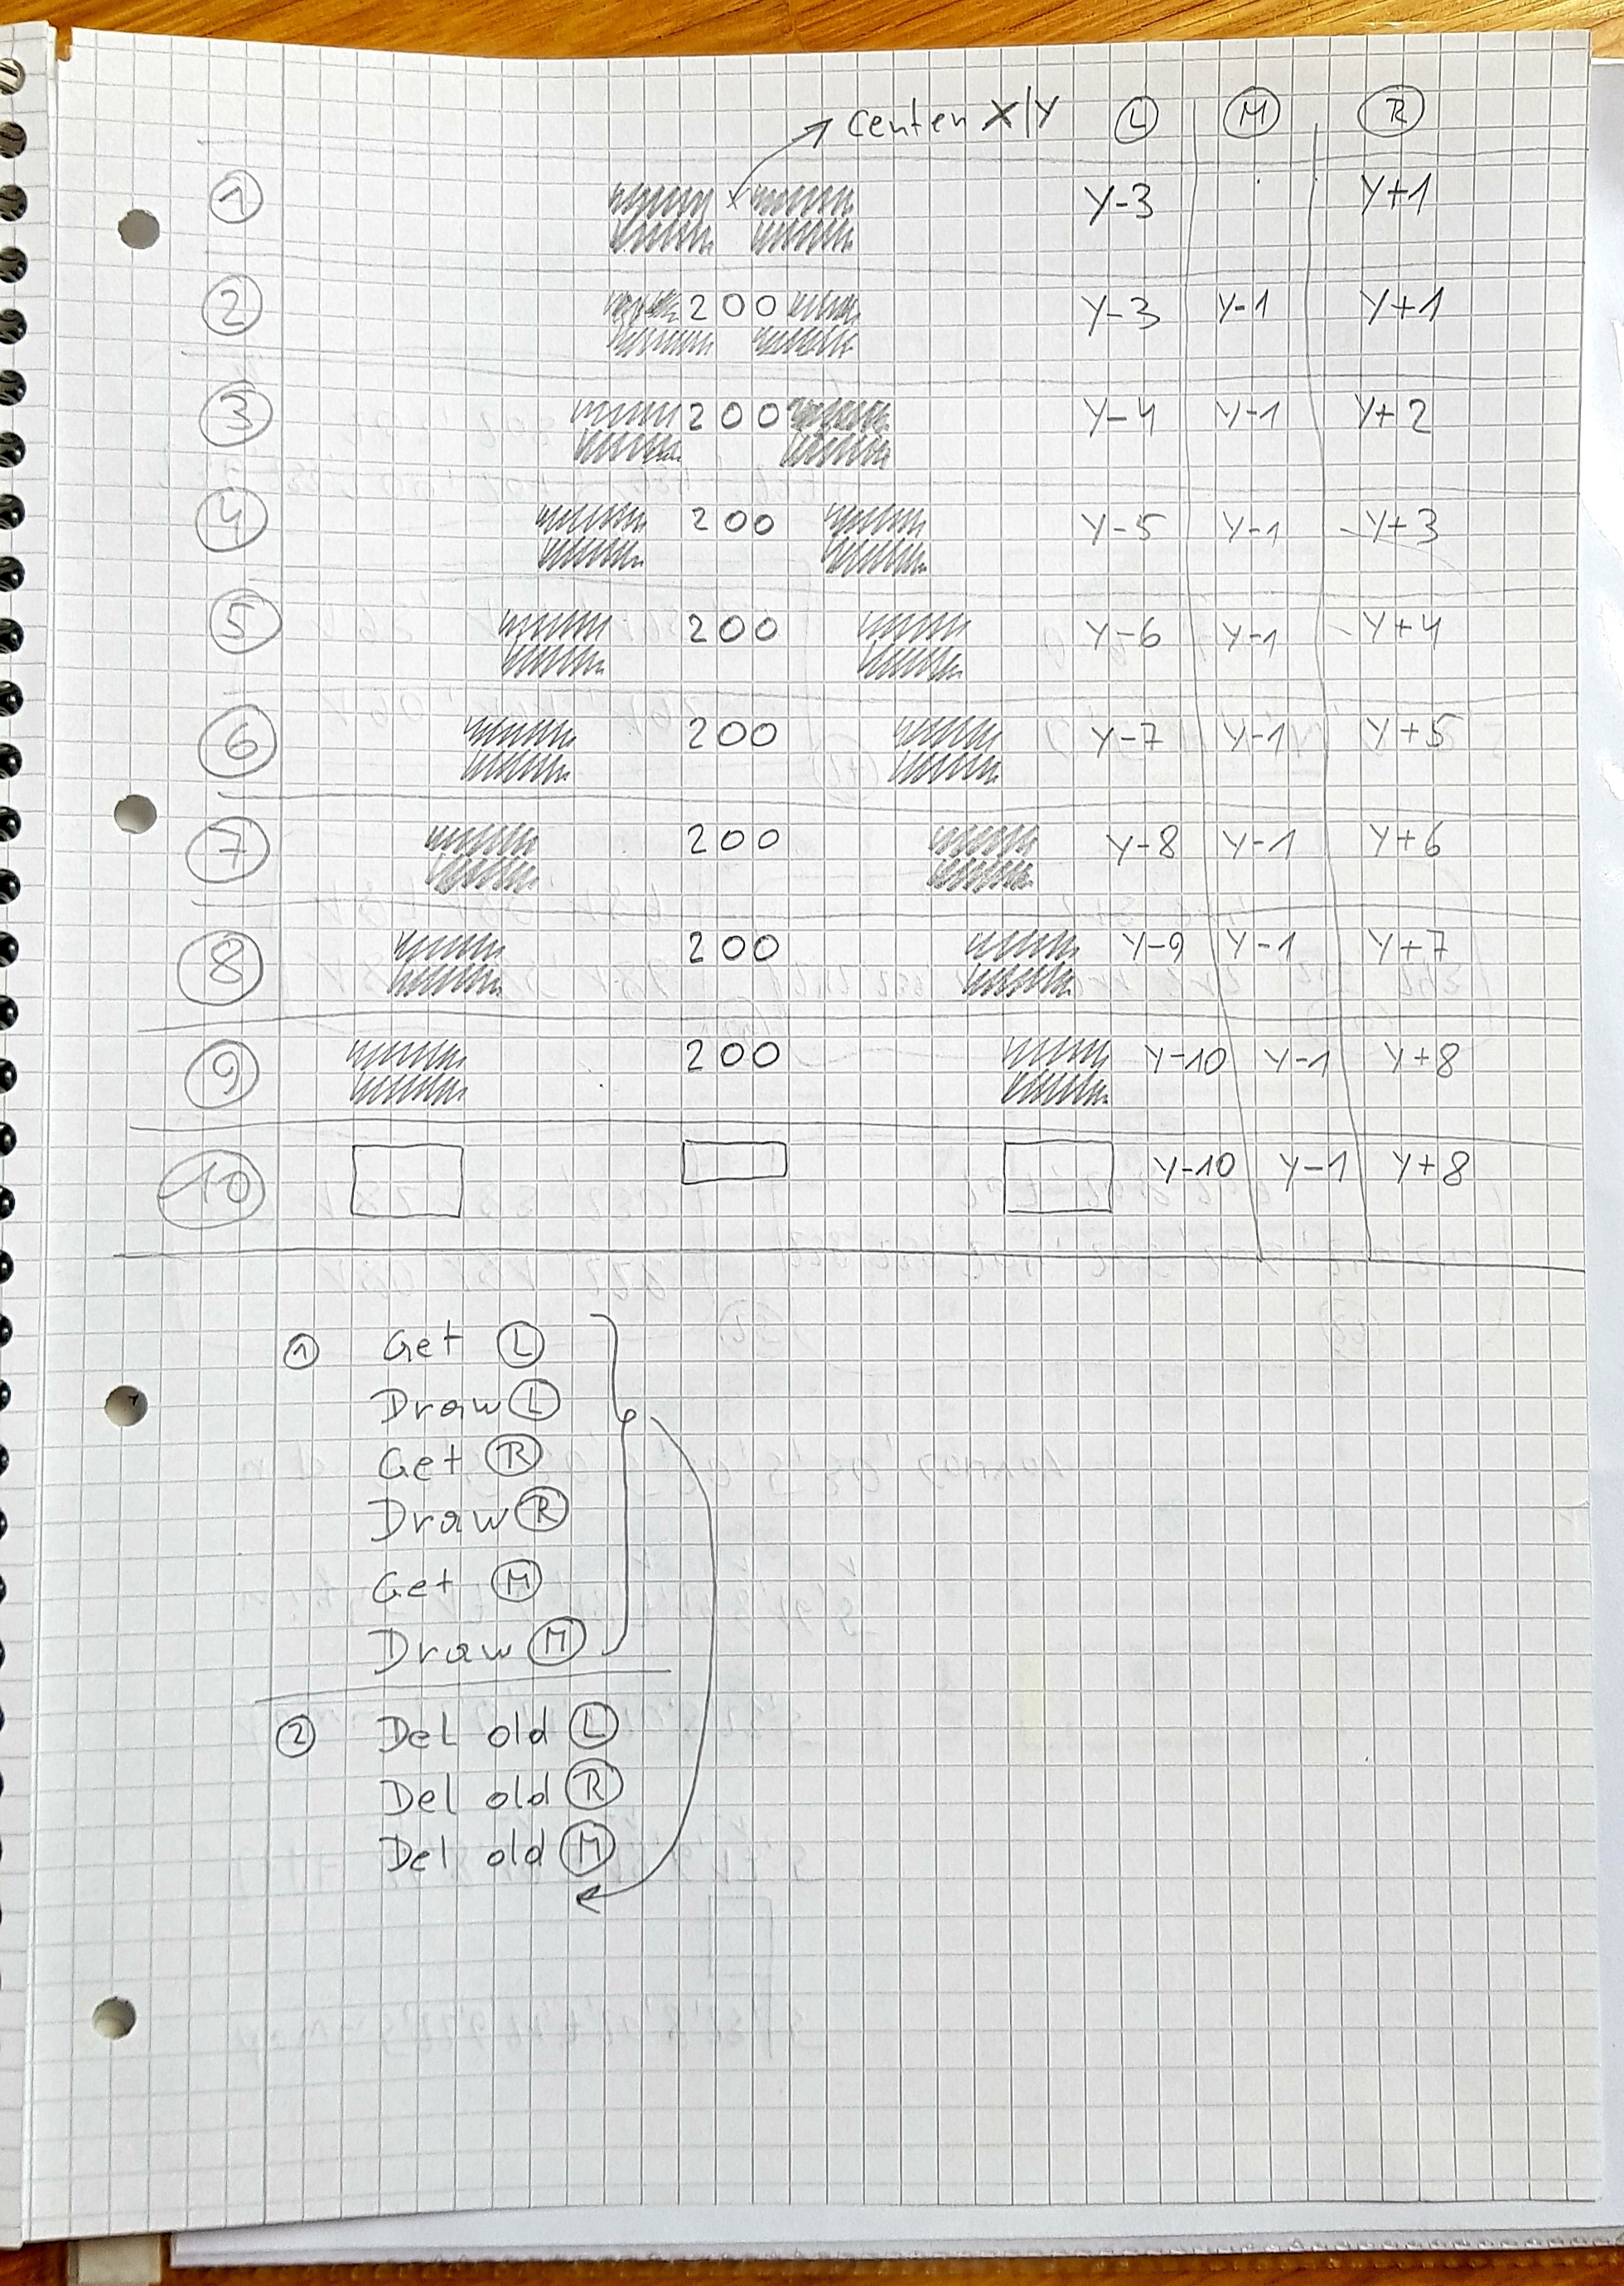 Center X/Y L M R
1 Y-3 Y+1
2 200 Y-3 Y-1 Y+1
3 200 Y-4 Y-1 Y+2
4 200 Y-5 Y-1 Y+3
5 200 Y-6 Y-1 Y+4
6 200 Y-7 Y-1 Y+5
7 200 Y-8 Y-1 Y+6
8 200 Y-9 Y-1 Y+7
9 200 Y-10 Y-1 Y+8
10 Y-10 Y-1 Y+8
1 Get L
Draw L
Get R
Draw R
Get M
Draw M
2 Del old L
Del old R
Del old M